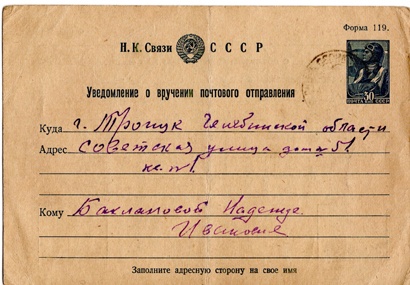 Форма 119.
Н. К. Связи СССР
30
ПОЧТА СССР
Уведомление о вручении почтового отправления
Куда г. Троицк Челябинской области
Адрес Советская улица дом
кв. №1
Кому Баклановой Надежде
Ивановне
Заполните адресную сторону на свое имя